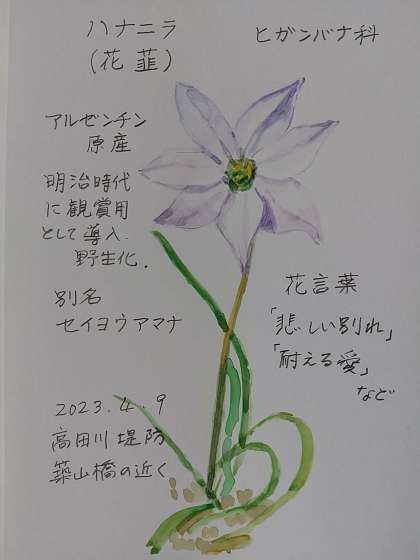 ハナニラ
(花韮)
ヒガンバナ科
アルゼンチン
原産
明治時代
に観賞用
として導入.
野生化.
別名
セイヨウアマナ
花言葉
「悲しい別れ」
「耐える愛」
など
2023.4.9
高田川堤防
築山橋の近く